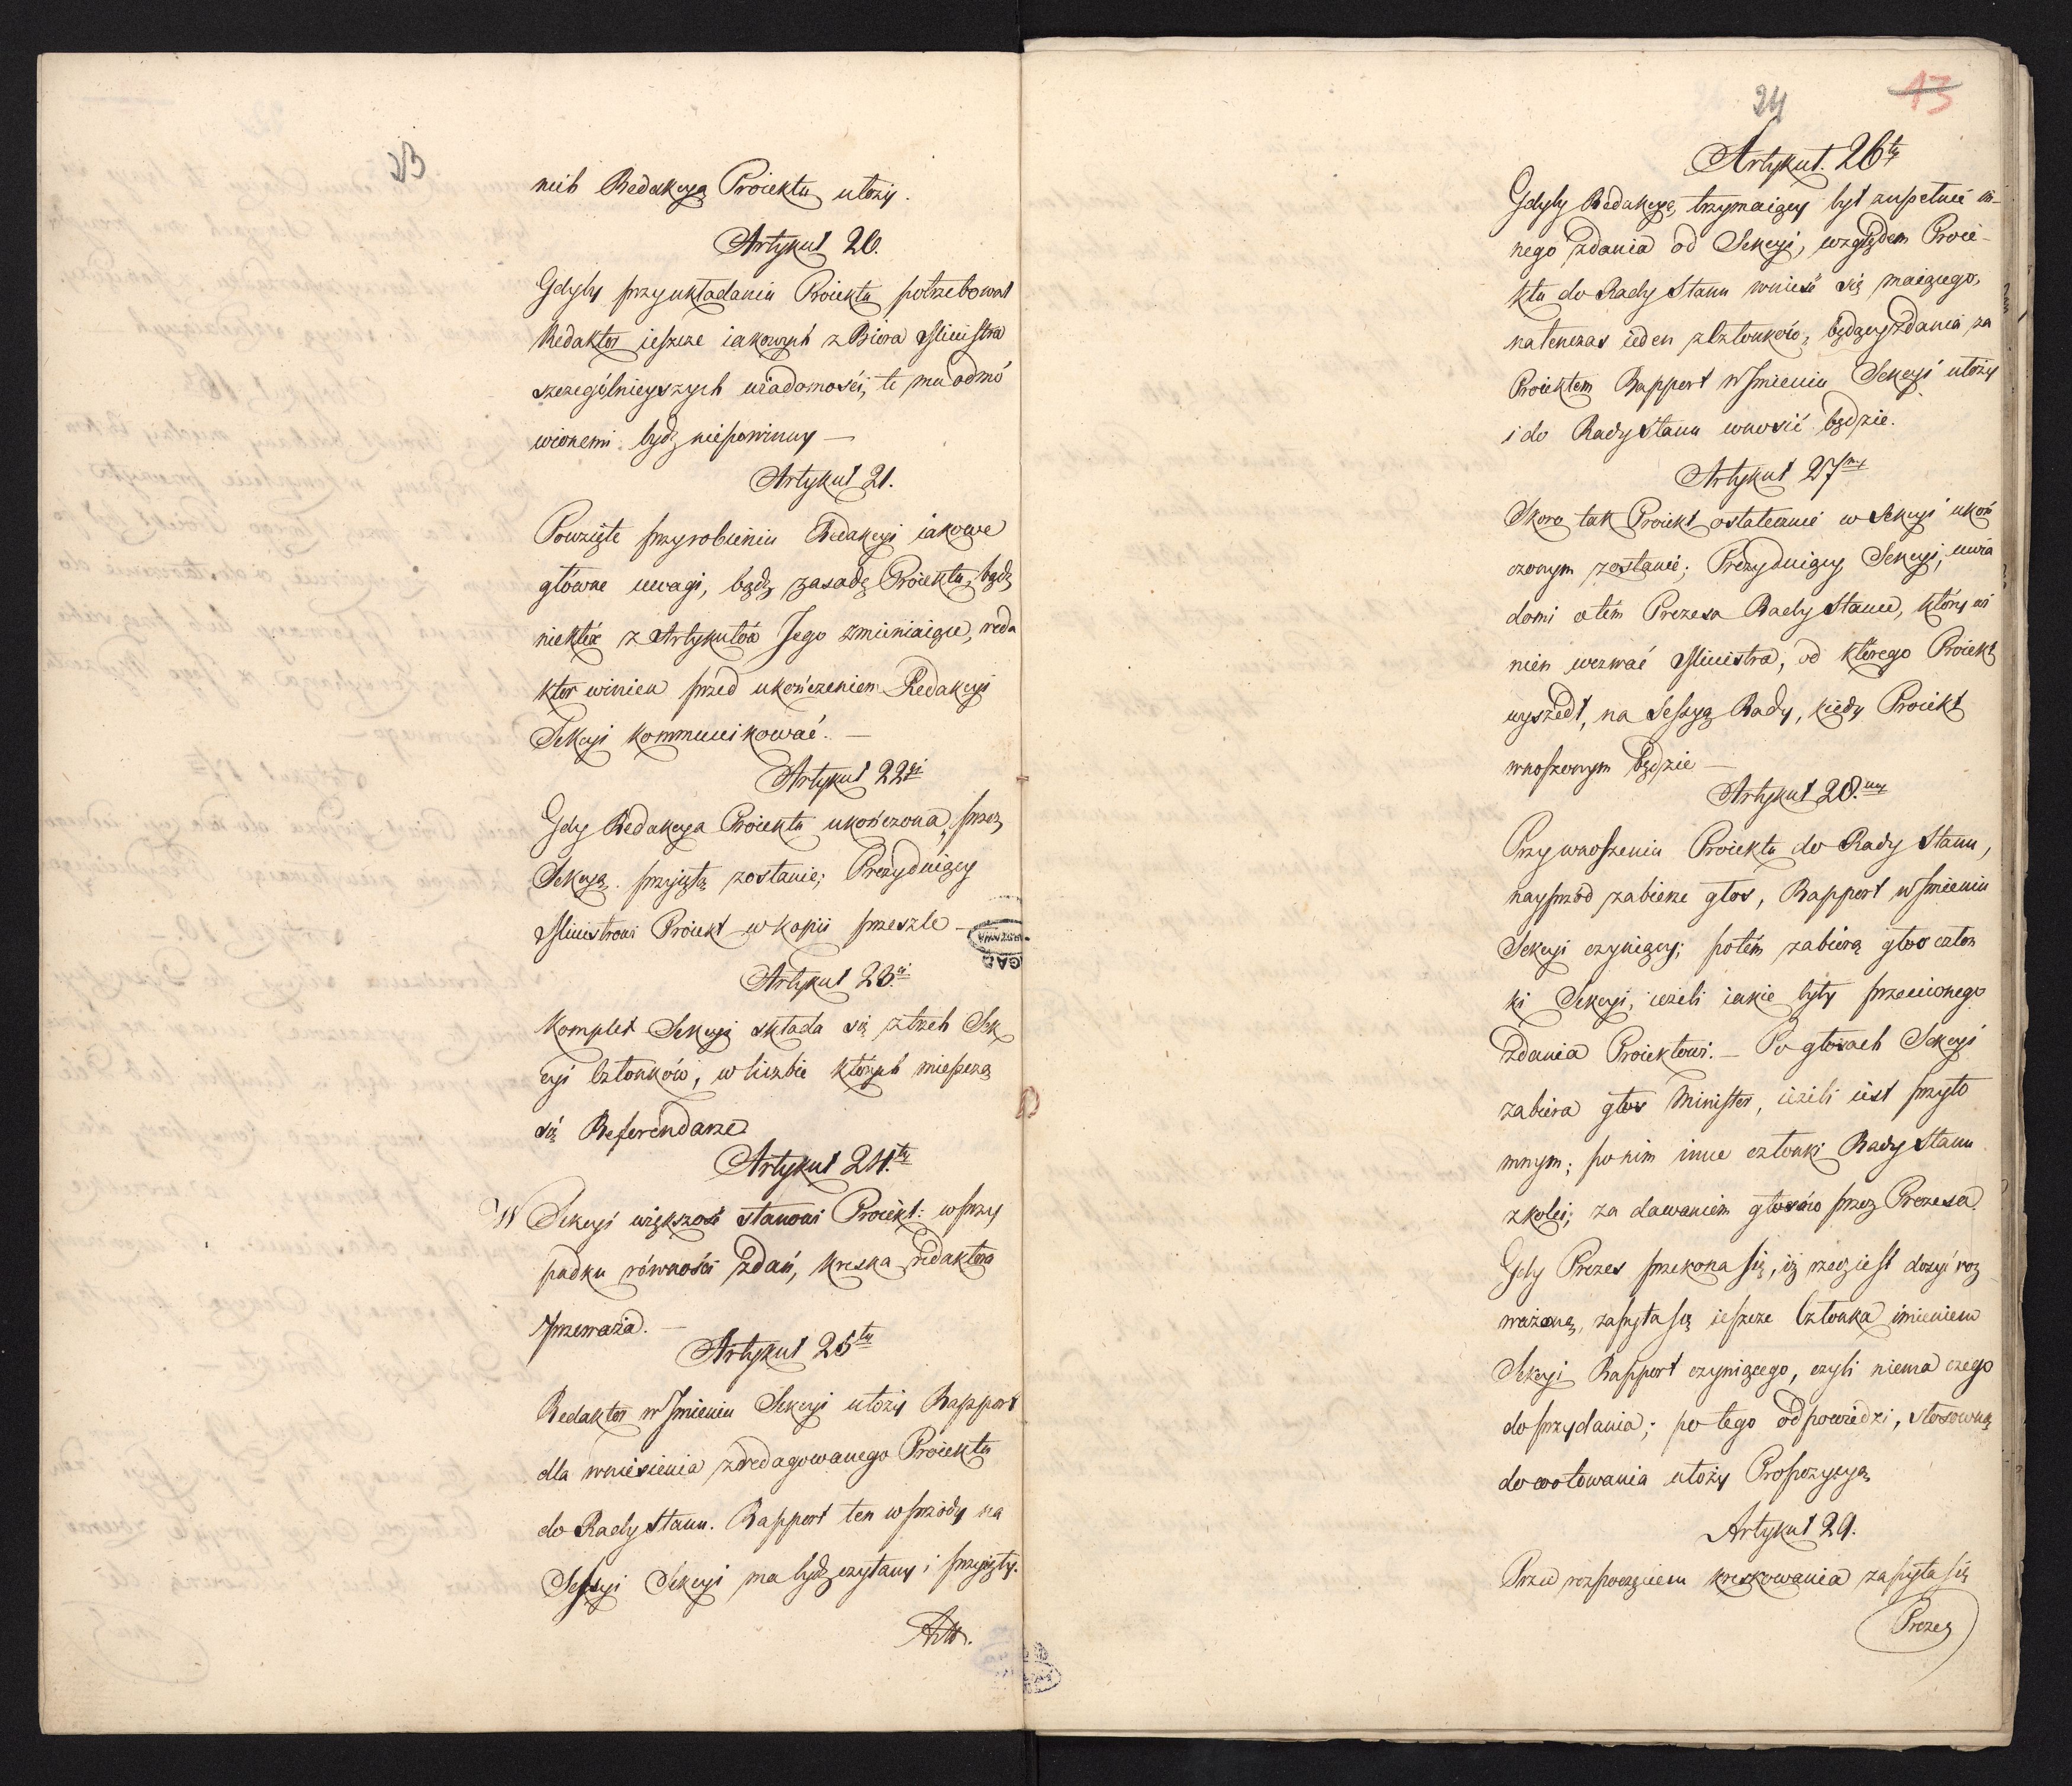 23
nich Redakcyą Proiektu ułoży.
Artykuł 20.
Gdyby przy układaniu Proiektu potrzebował
Redaktor ieszcze iakowych z Biora Ministra
szczególnieyszych wiadomości, te mu odmó
wionemi bydź niepowinny —
Artykuł 21.
Powzięte przy robieniu Redakcyi iakowe
główne uwagi, bądź zasadę Proiektu, bądź
niektóre z Artykułów Jego zmieniaiące, reda
ktor winien przed ukończeniem Redakcyi
Sekcyi kommunikować. —
Artykuł 22gi
Gdy Redakcya Proiektu ukończona, przez
Sekcyą przyiętą zostanie; Prezyduiący
Ministrowi Proiekt w kopii przeszle —
Artykuł 23.ci
Komplet Sekcyi składa się z trzech Sek
cyi Członków, w liczbie których mieszczą
się Referendarze
Artykuł 24.ty
W Sekcyi większość stanowi Proiekt: w przy
padku równości zdań, kreska redaktora
przeważa. —
Artykuł 25ty
Redaktor w Jmieniu Sekcyi ułoży Rapport
dla wniesienia zredagowanego Proiektu
do Rady Stanu. Rapport ten w przódy na
Sessyi Sekcyi ma bydź czytany i przyięty.
Art.
24
13
Artykuł. 26ty
Gdyby Redakcyę trzymaiący był zupełnie in-
nego zdania od Sekcyi, względem Proie-
ktu do Rady Stanu wnieść się maiącego,
natenczas ieden z Członków, będący zdania za
Proiektem Rapport w Jmieniu Sekcyi ułoży
i do Rady Stanu wnosić będzie.
Artykuł 27my
Skoro tak Proiekt ostatecznie w Sekcyi ukoń
czonym zostanie; Prezyduiący Sekcyi, uwia
domi o tém Prezesa Rady Stanu, który wi
nien wezwać Ministra, od którego Proiekt
wyszedł, na Sessyą Rady, kiedy Proiekt
wnoszonym będzie —
Artykuł 28.my
Przy wnoszeniu Proiektu do Rady Stanu,
nayprzód zabierze głos, Rapport w Jmieniu
Sekcyi czyniący; potém zabiorą głos człon
ki Sekcyi, ieżeli iakie były przeciwnego
zdania Proiektowi. — Po głosach Sekcyi
zabiera głos Minister, ieżeli iest przyto
mnym; po nim inne członki Rady Stanu
z kolei; za dawaniem głosów przez Prezesa.
Gdy Prezes przekona się, iż rzecz iest dosyć roz
ważoną, zapyta się ieszcze Członka imieniem
Sekcyi Rapport czyniącego, czyli niema czego
do przydania; po tego odpowiedzi, stosowną
do wotowania ułoży Propozycyą
Artykuł 29.
Przed rozpoczęciem kreskowania zapyta się
Prezes